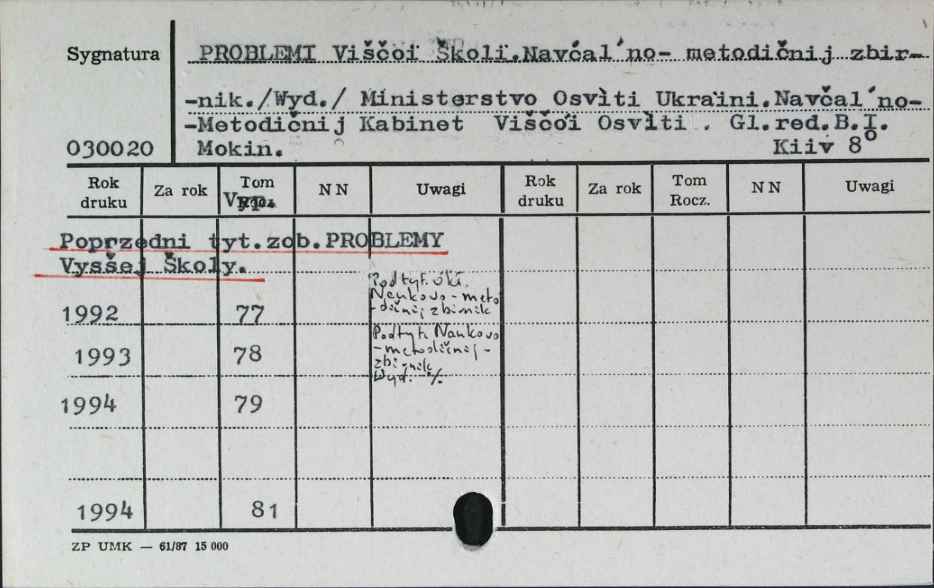 Sygnatura PROBLEMI Viščoï Školi. Navčal'no- metodičnij zbir-
-nik./Wyd./ Ministerstvo Osvìti Ukraïni. Navčal'no-
-Metodičnij Kabinet Viščoï Osvìti . Gl.red.B.I.
030020 Mokin. Kiïv 8°
Rok druku Za rok Tom Vyp. N N Uwagi Rok druku Za rok Tom Rocz. N N Uwagi
Poprzedni tyt.zob.PROBLEMY
Vysšej Školy.
Podtyt. ukł.
Naukovo-meto
1992 77 -dičnij zbirnik
Podtyt. Naukovo
1993 78 -metodičnij-
zbirnik
Wyd. %
1994 79
1994 81
ZP UMK — 61/87 15 000